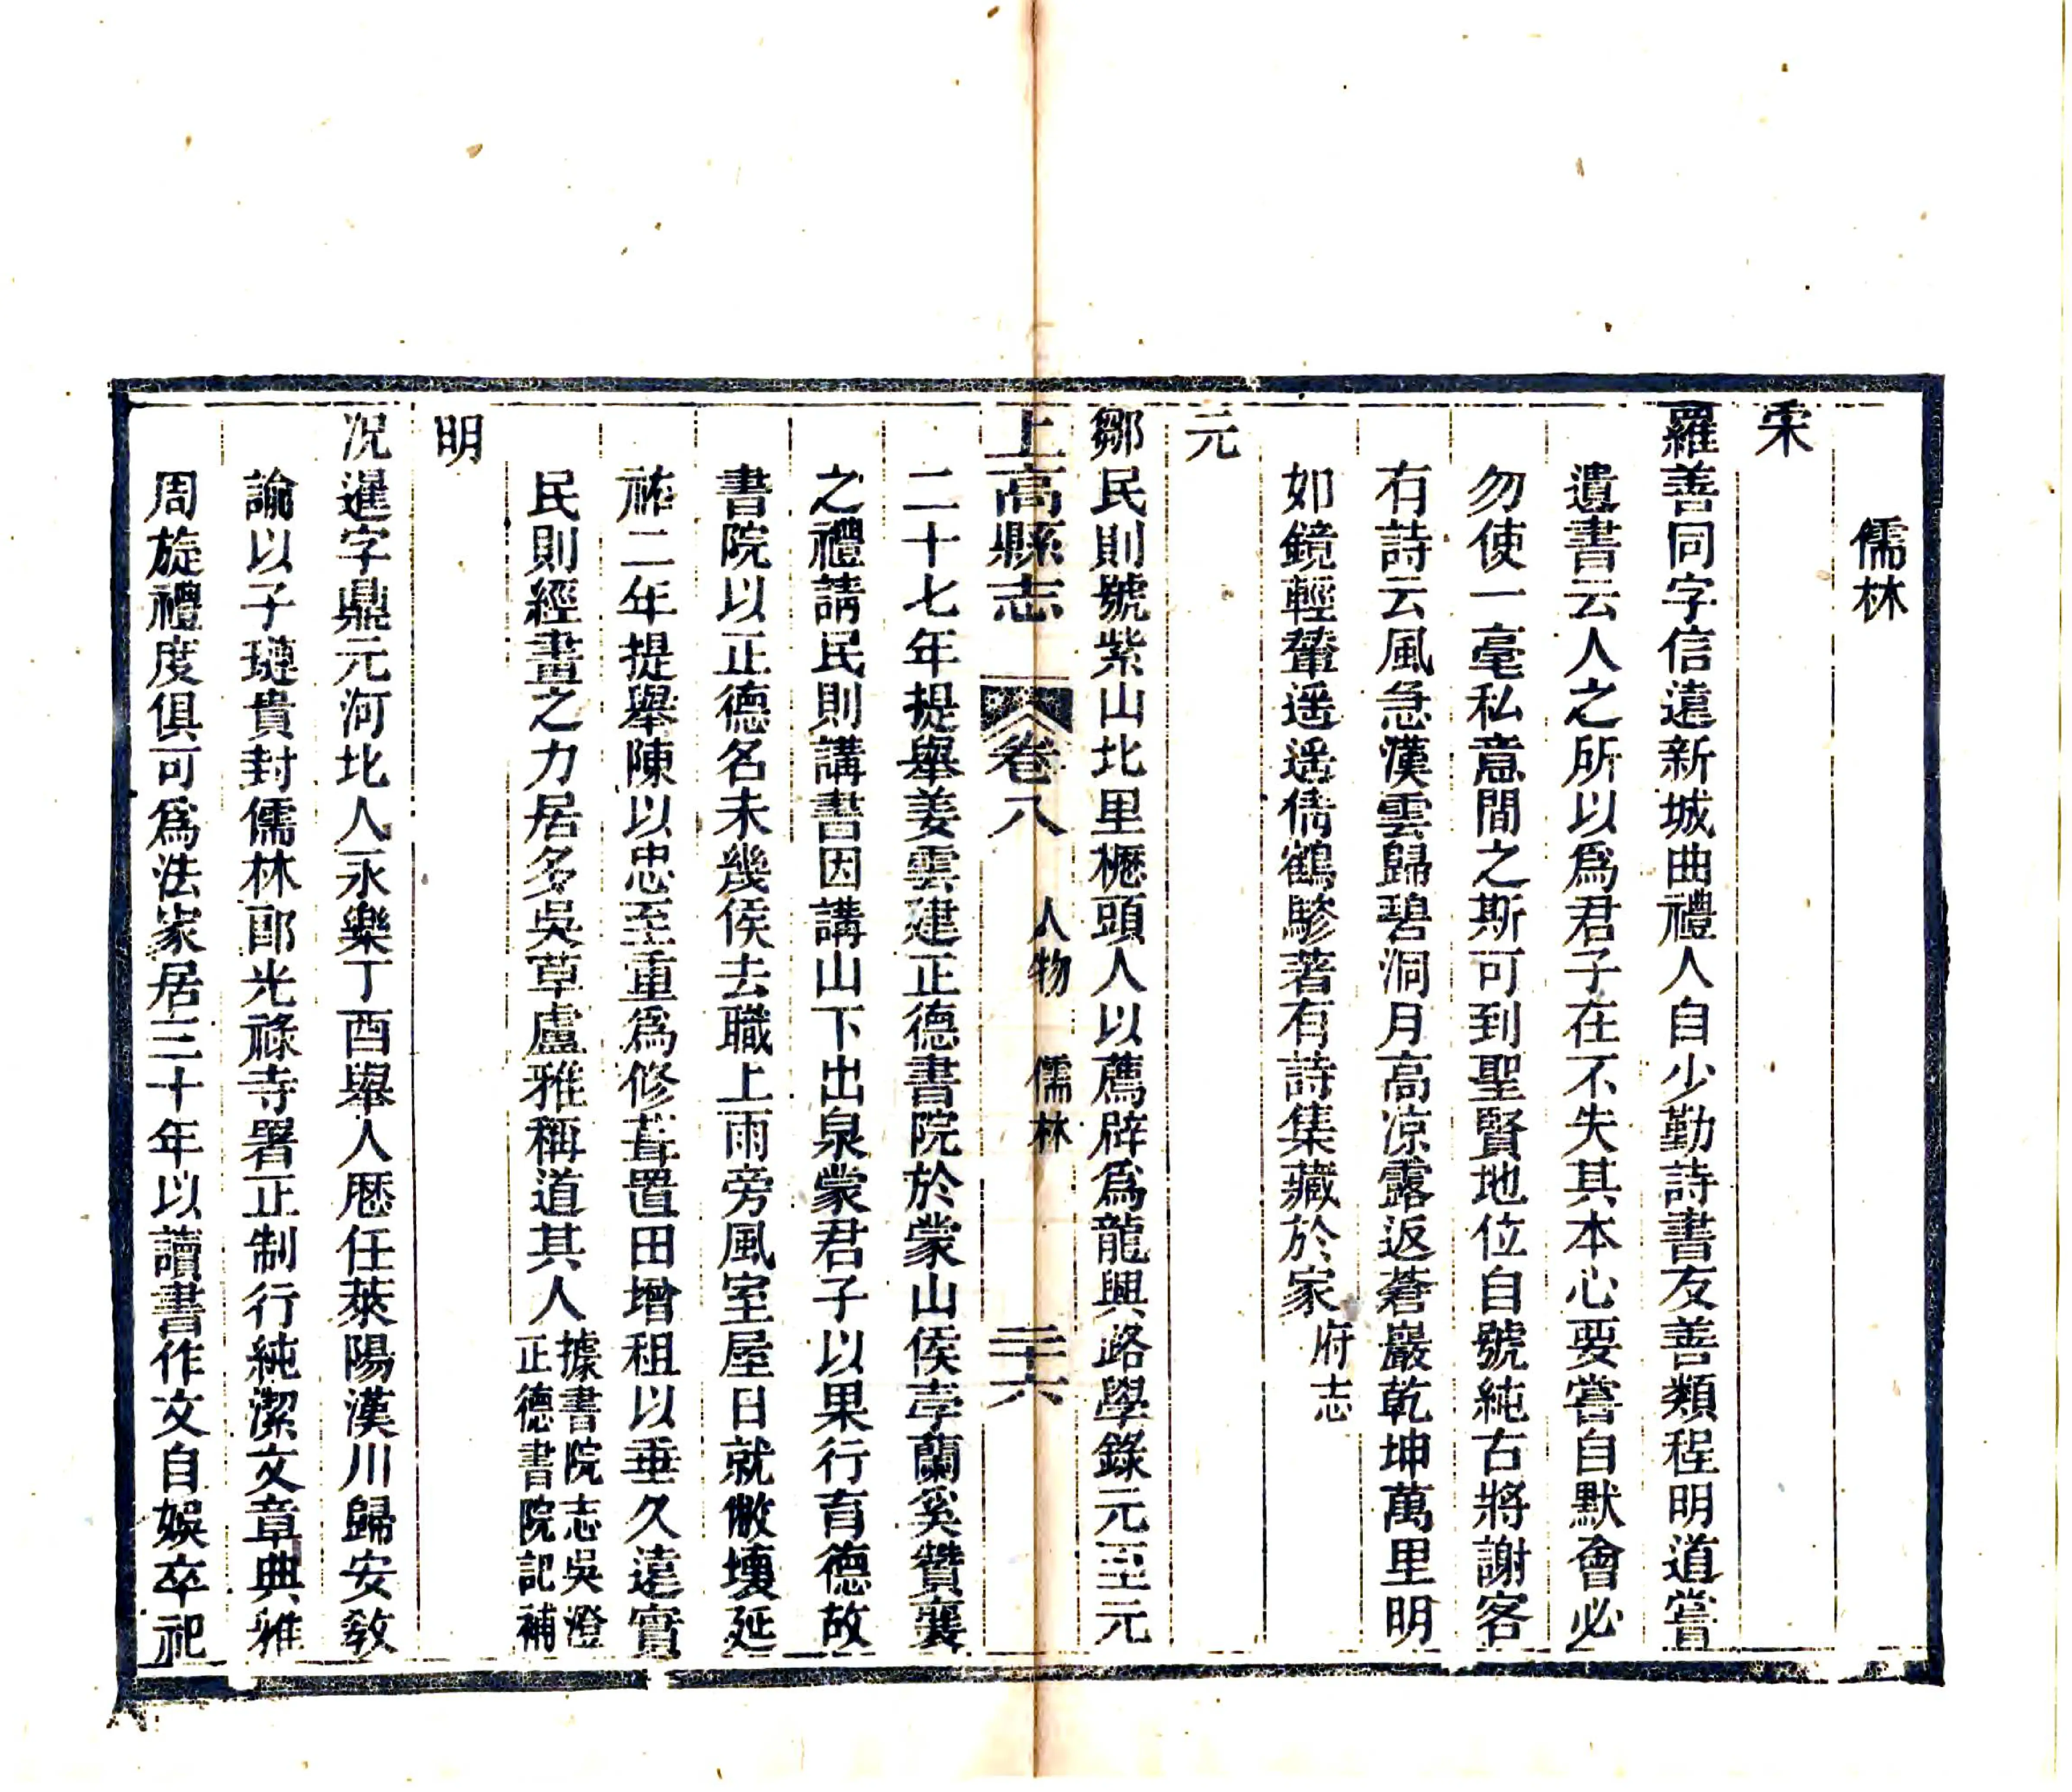 儒林
宋
羅善同字信遠新城曲禮人自少勤詩書友善類程明道嘗
遺書云人之所以爲君子在不失其本心要嘗自默會必
勿使一毫私意間之斯可到聖賢地位自號純古將謝客
有詩云風急漢雲歸碧洞月高凉露返蒼巖乾坤萬里明
如鏡輕輦遥遥倩鶴驂著有詩集藏於家府志
元
鄒民則號紫山北里櫪頭人以薦辟爲龍興路學錄元至元
上高縣志 卷八 人物 儒林 二十六
二十七年提舉姜雲建正德書院於蒙山侯孛蘭奚贊襄
之禮請民則講書因講山下出泉蒙君子以果行育德故
書院以正德名未幾侯去職上雨旁風室屋日就敝壞延
祐二年提舉陳以忠至重爲修葺置田增租以垂久遠實
民則經畫之力居多吳草廬雅稱道其人據書院志吳澄
正德書院記補
明
况暹字鼎元河北人永樂丁酉舉人歷任萊陽漢川歸安敎
諭以子璉貴封儒林郎光祿寺署正制行純潔文章典雅
周旋禮度俱可爲法家居三十年以讀書作文自娛卒祀